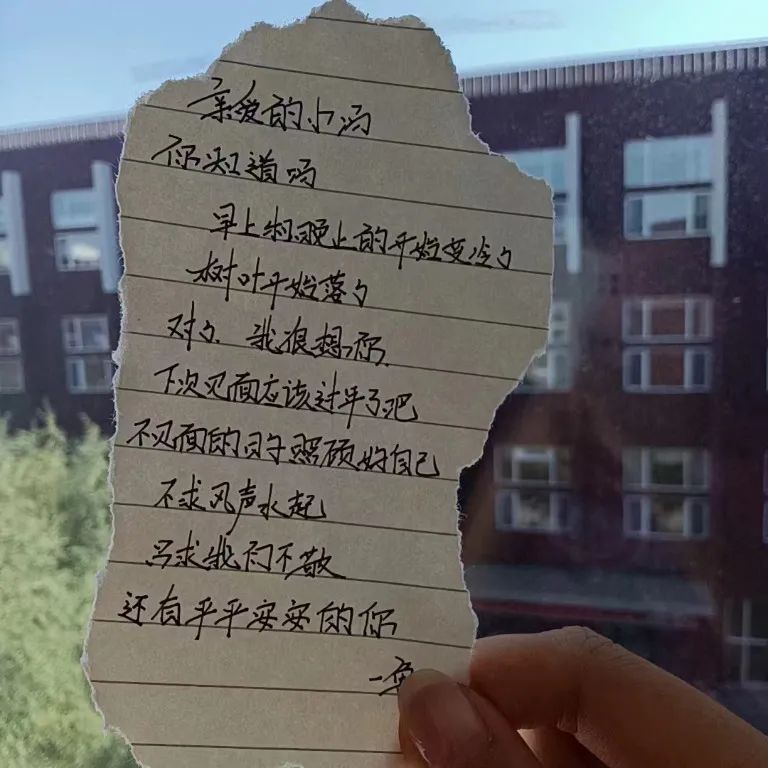 亲爱的小冯
你知道吗
早上和晚上的开始变冷了
树叶开始落了
对了、我很想你、
下次见面应该过年了吧
不见面的日子照顾好自己
不求风声水起
只求我们不散
还有平平安安的你